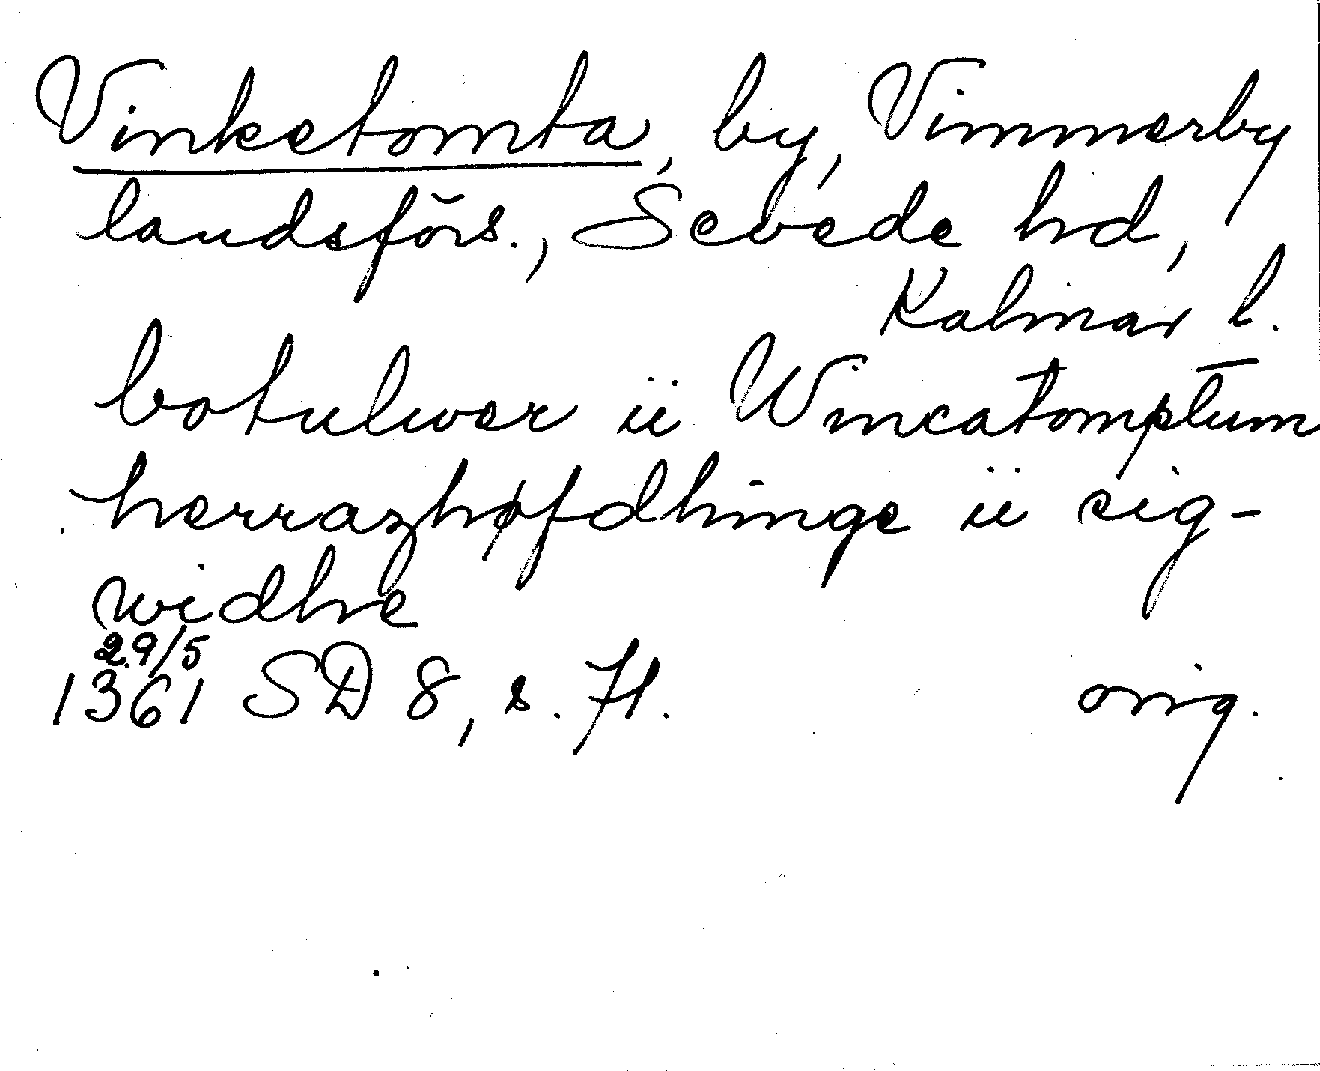 Vinketomta, by, Vimmerby
landsförs., Sevede hd,
Kalmar l.
botulwer ii Wincatomptum
herrazhøfdhinge ii sig-
widhe
29/5
1361 SD 8, s. 71. orig.